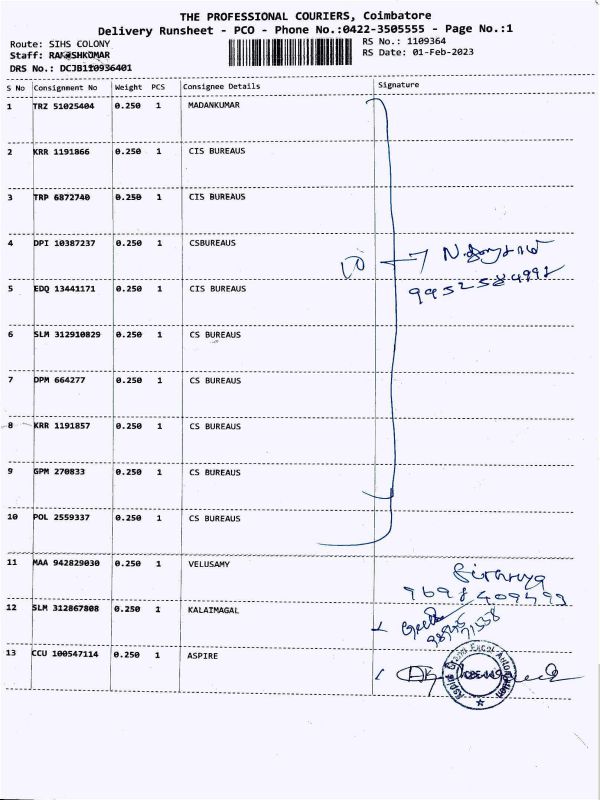 THE PROFESSIONAL COURIERS, Coimbatore
Delivery Runsheet - PCO - Phone No.:0422-3505555 - Page No.:1
Route: SIHS COLONY
RS No.: 1109364
Staff: RAKESHKUMAR
RS Date: 01-Feb-2023
DRS No.: DCJB110936401
S No Consignment No Weight PCS Consignee Details Signature
1 TRZ 51025404 0.250 1 MADANKUMAR
2 KRR 1191866 0.250 1 CIS BUREAUS
3 TRP 6872740 0.250 1 CIS BUREAUS
4 DPI 10387237 0.250 1 CSBUREAUS
10
5 EDQ 13441171 0.250 1 CIS BUREAUS
6 SLM 312910829 0.250 1 CS BUREAUS
7 DPM 664277 0.250 1 CS BUREAUS
8 KRR 1191857 0.250 1 CS BUREAUS
9 GPM 270833 0.250 1 CS BUREAUS
10 POL 2559337 0.250 1 CS BUREAUS
11 MAA 942829030 0.250 1 VELUSAMY
12 SLM 312867808 0.250 1 KALAIMAGAL
13 CCU 100547114 0.250 1 ASPIRE